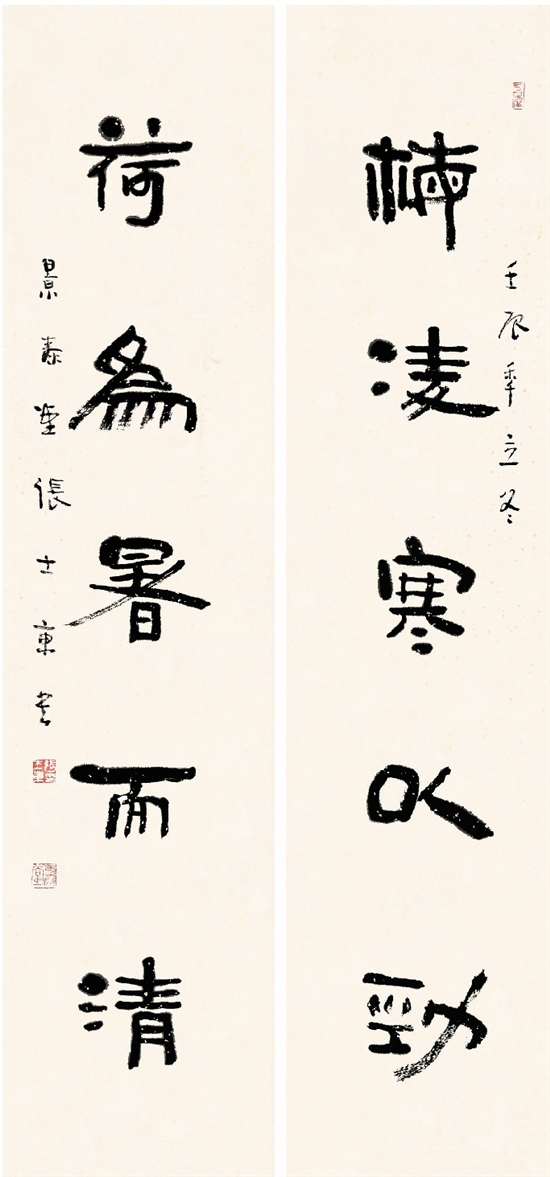 壬辰年立冬
梅凌寒以勁
荷爲暑而清
景泰堂張士東書